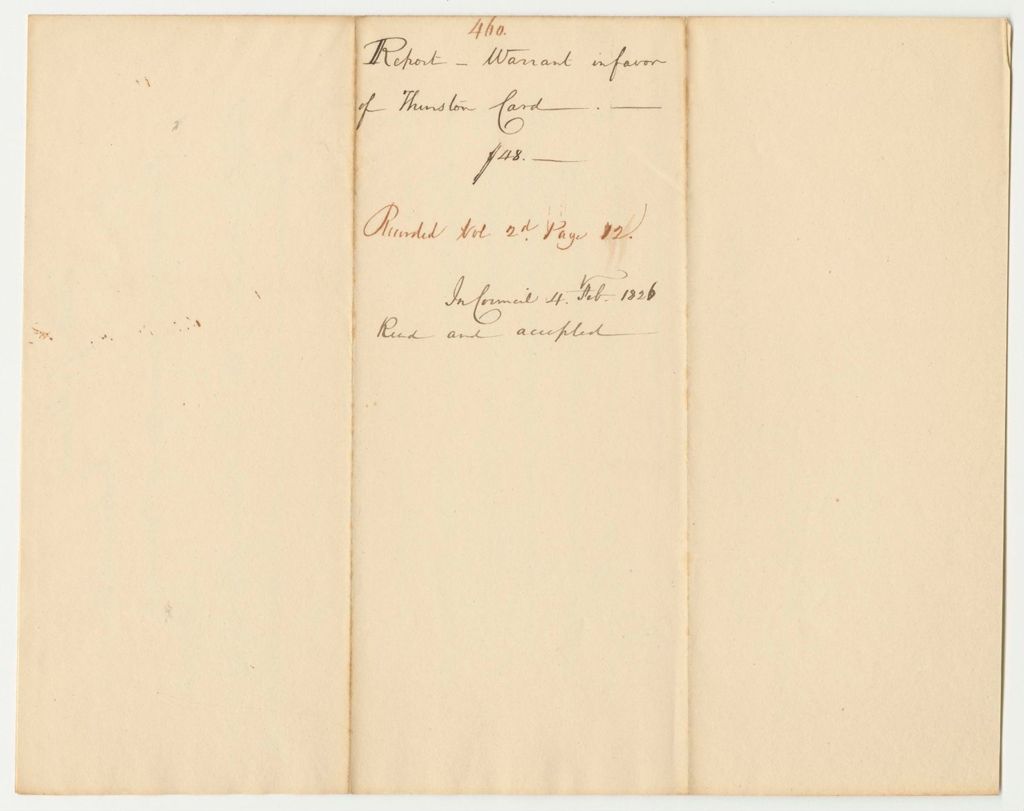 460.
Report — Warrant in favor
of Thurston Card . —
$48. —
Recorded Vol 2d. Page 12.
In Council 4. Feb. 1826
Read and accepted